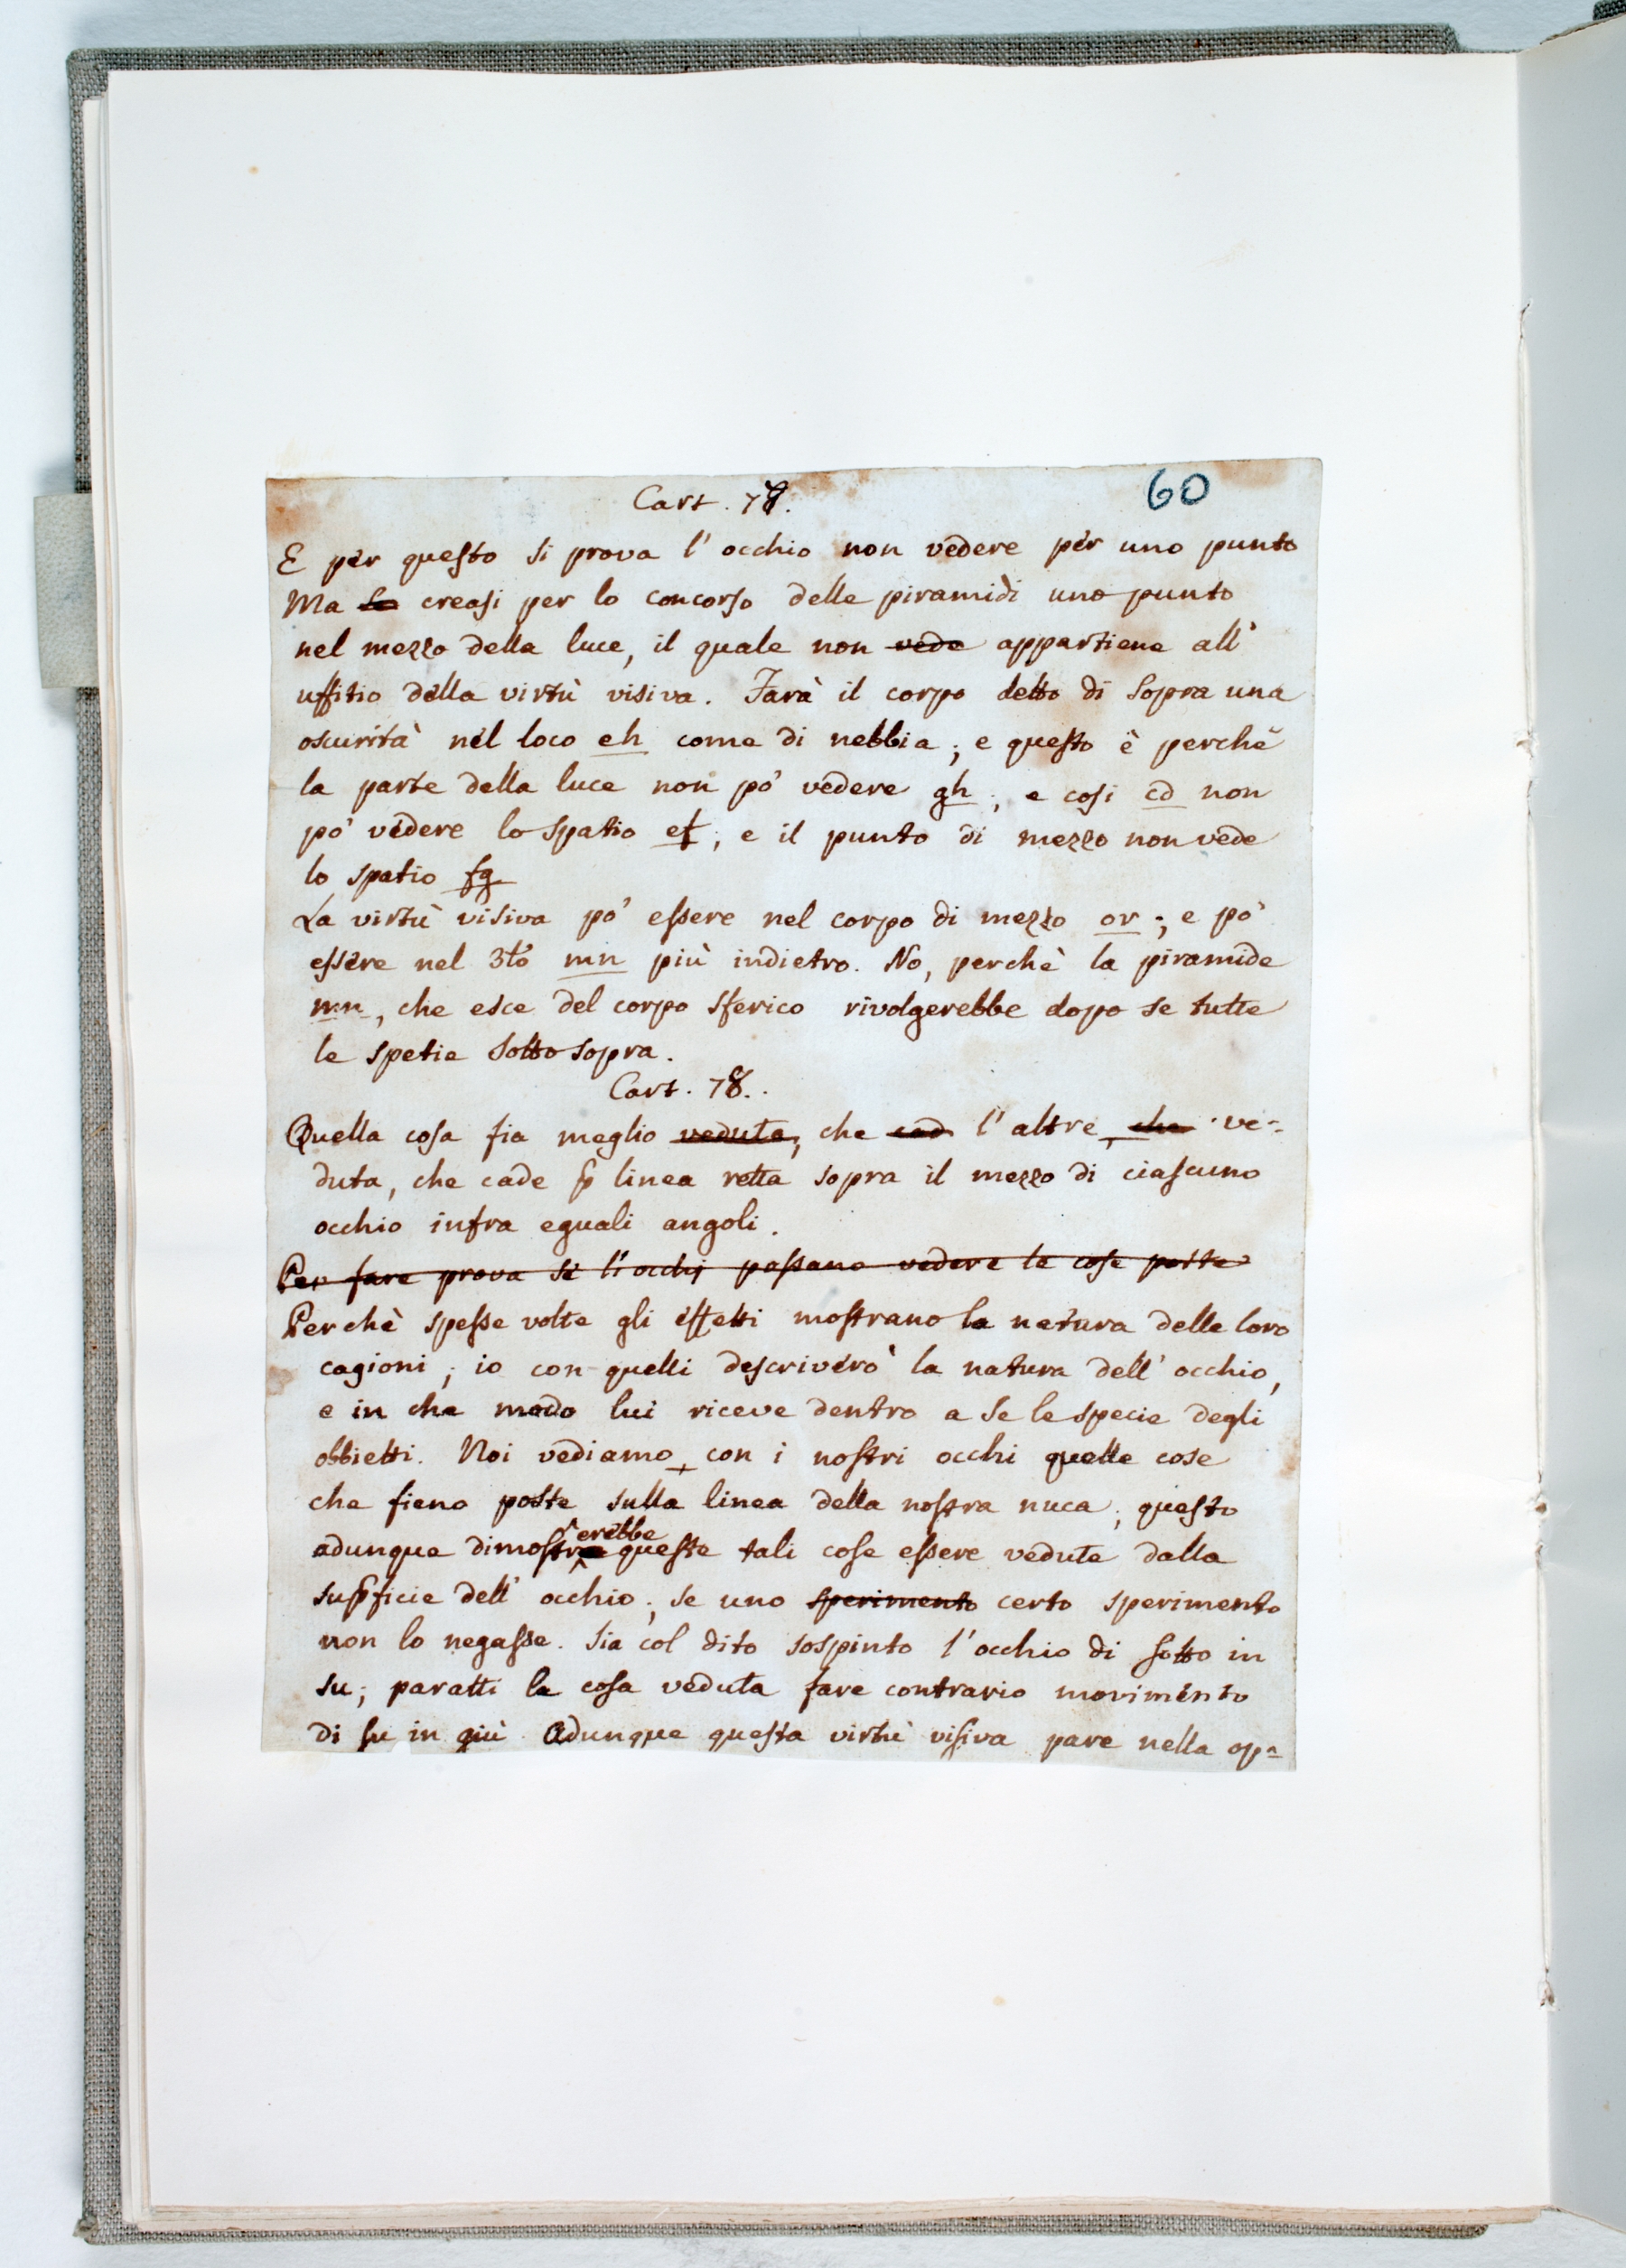 60
Cart. 78.
E per questo si prova l'occhio non vedere per uno punto
Ma creasi per lo concorso delle piramidi uno punto
nel mezzo della luce, il quale non vede appartiene all'
uffitio della virtù visiva. Farà il corpo detto di sopra una
oscurità nel loco eh come di nebbia; e questo è perchè
la parte della luce non pò vedere gh; e cosi cd non
pò vedere lo spatio ef; e il punto di mezzo non vede
lo spatio fg
La virtù visiva pò essere nel corpo di mezzo or; e pò
essere nel 3to mn più indietro. No, perchè la piramide
mn, che esce del corpo sferico rivolgerebbe dopo se tutte
le spetie sotto sopra.
Cart. 78.
Quella cosa fia meglio veduta, che cad l'altre, che ve-
duta, che cade ꝑ linea retta sopra il mezzo di ciascuno
occhio infra eguali angoli.
Per fare prova se li occhj possano vedere le cose poste
Perchè spesse volte gli effetti mostrano la natura delle loro
cagioni; io con quelli descriverò la natura dell'occhio,
e in che modo lui riceve dentro a se le specie degli
obbietti. Noi vediamo, con i nostri occhi quelle cose
che fieno poste sulla linea della nostra nuca; questo
adunque dimostrerebbe queste tali cose essere vedute dalla
suꝑficie dell'occhio; se uno sperimento certo sperimento
non lo negasse. Sia col dito sospinto l'occhio di sotto in
su; paratti la cosa veduta fare contrario movimento
di su in giù. Adunque questa virtù visiva pare nella op-